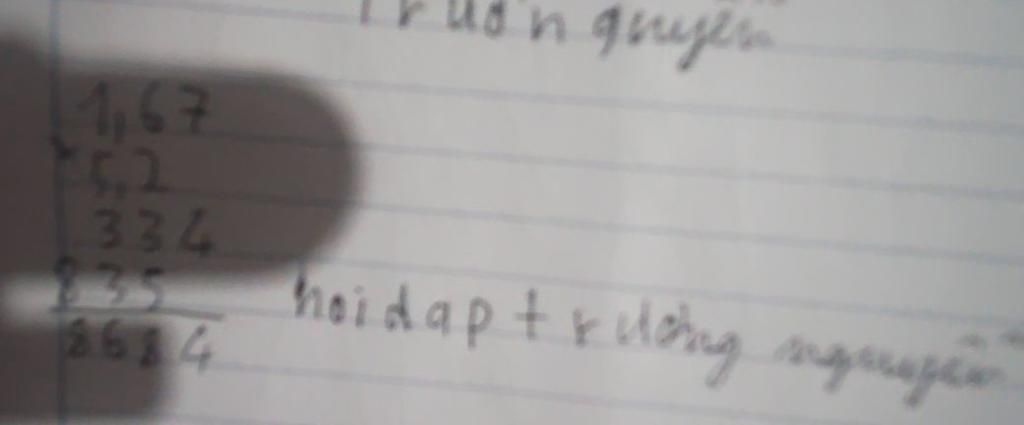 Truờn quyên
1,67
x 5,2
334
835
8684 hoidap trường nguyên